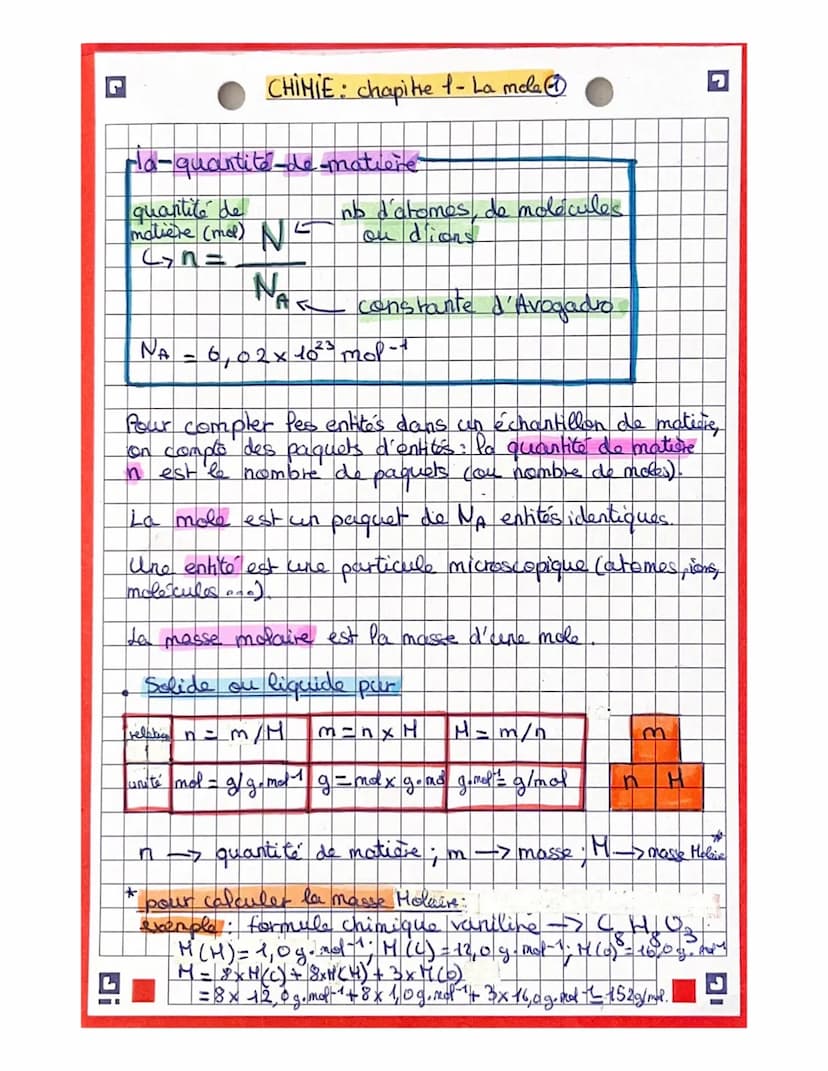 CHIMIE : chapitre 1 - La mole ①
la quantité de matière
quantité de
matière (mol)
nb d'atomes, de molécules
ou d'ions
n = N / NA
constante d'Avogadro
NA = 6,02 x 10²³ mol⁻¹
Pour compter les entités dans un échantillon de matière,
on compte des paquets d'entités : la quantité de matière
n est le nombre de paquets (ou nombre de moles).
La mole est un paquet de NA entités identiques.
Une entité est une particule microscopique (atomes, ions,
molécules ...).
La masse molaire est la masse d'une mole.
. Solide ou liquide pur
relation n = m/M m = n x M M = m/n
unité mol = g/g.mol⁻¹ g = mol x g.mol g.mol⁻¹ = g/mol
m
n M
n → quantité de matière ; m → masse ; M → masse Molaire*
* pour calculer la masse Molaire :
exemple : formule chimique vanilline → C₈H₈O₃
M(H) = 1,0 g.mol⁻¹ ; M(C) = 12,0 g.mol⁻¹ ; M(O) = 16,0 g.mol⁻¹
M = 8xM(C) + 8xM(H) + 3xM(O)
= 8 x 12,0 g.mol⁻¹ + 8 x 1,0 g.mol⁻¹ + 3 x 16,0 g.mol⁻¹ = 152 g/mol.